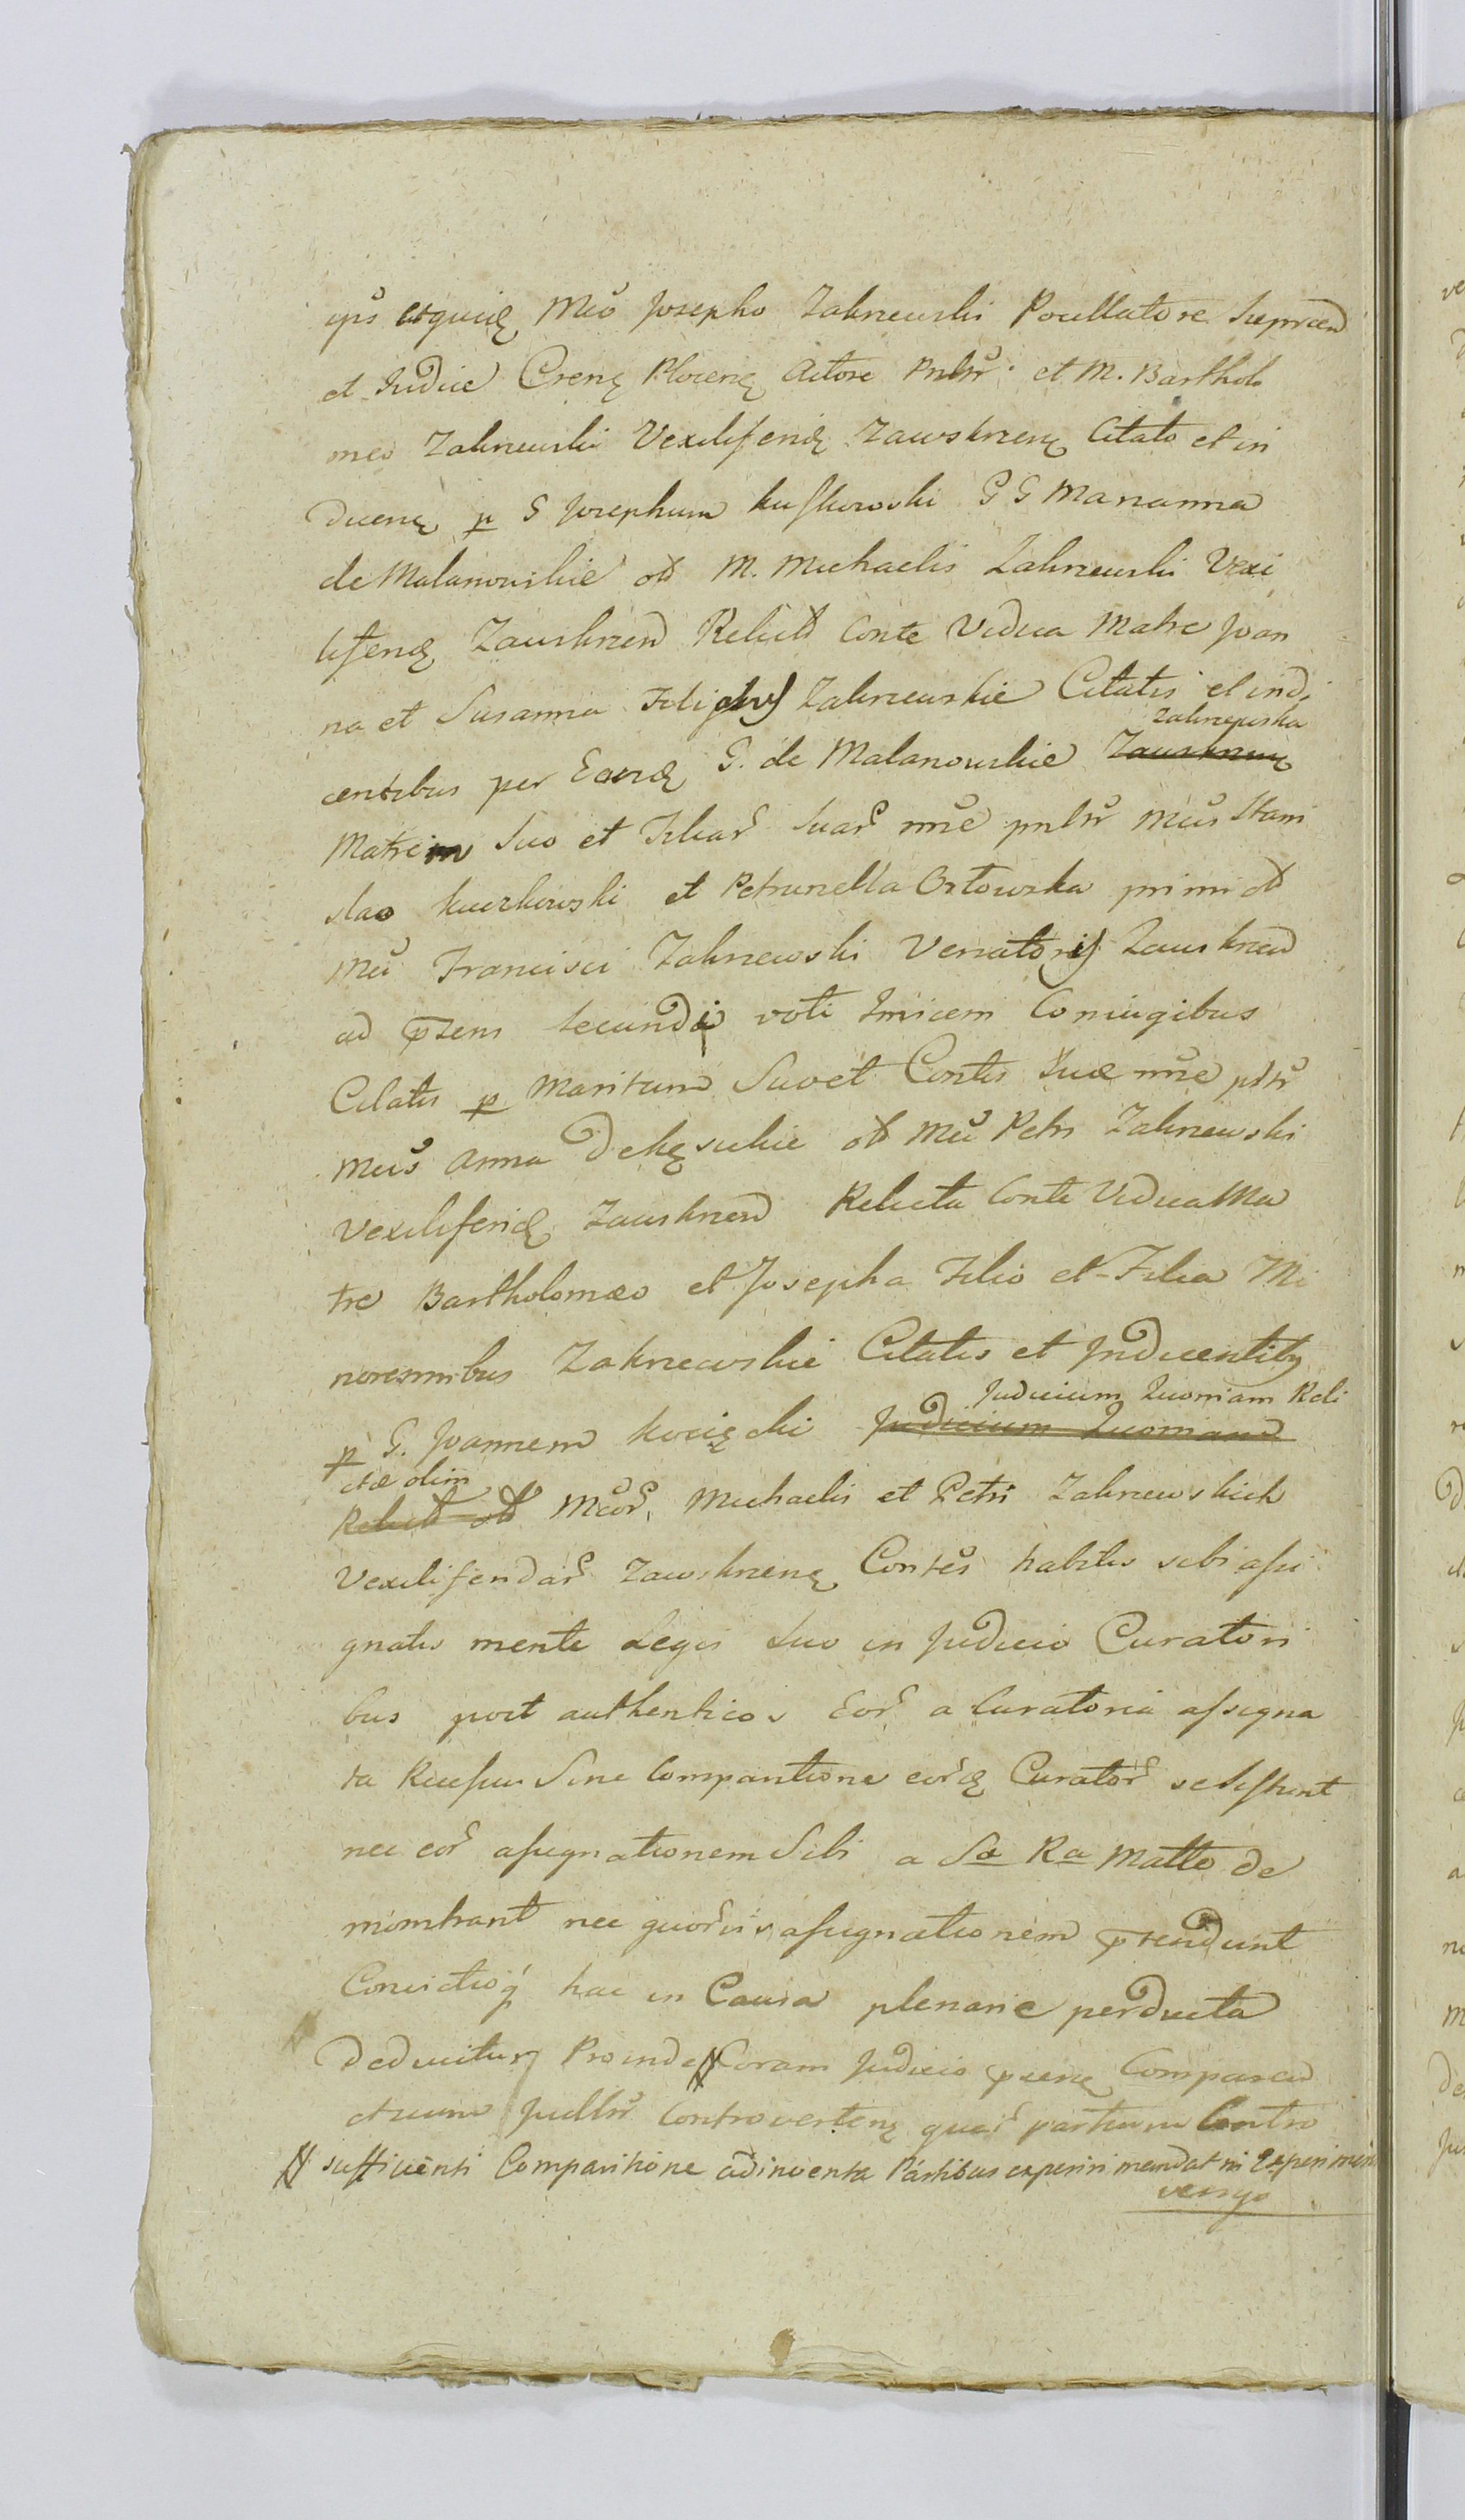 Mcō Josepho Zakrzewski Pocillatore Sieprcen
et Judice Cren Plocen Actore Pnlŕ et M. Barthol
meo Zakrzewski Vexilliferid Zawskrzen Citato et in
ducen p G Josephum G G Marianna
de Malanowskie ol M. Michaelis Zakrzewski Vexi
liferid Zawskrzen Relict Conte Vidua Matre Joan
na et Susanna Zakrzewskie Citatis et indi
Zakrzewska
centibus per G. de Malanowskie Zawskrzen
Matrem Suo et Filiar Suar nne pnlŕ Mcūs Stani
slao Kuczkowski et Petrunella Orłowska primi ol
Mci Francisci Zakrzewski Venatoris Zawskrzen
ad przens secundi voti Invicem Coniugibus
Citatis p Maritum Suo et Contis Suæ nne plŕ
Mcūs Anna ol Mci Petri Zakrzewski
Vexiliferid Zawskrzen Relicta Conte Vidua Ma
tre Bartholomæo et Josepha Filio et Filia Mi
norennibus Zakrzewskie Citatis et Inducentibq
Judicium Quoniam Reli
p G. Joannem Judicium Quoniam
ctæ olim
Relict ol Mcor. Michaelis et Petri Zakrzewskich
Vexiliferidar Zawskrzen Contes habitis sibi assi
gnatis mente Legis suo in Judicio Curatori
bus post authenticos Eor a Curatoria assigna
ta Sine Comparitione eord Curator se sistunt
nec eor assignationem Sibi a Sa Ra Matte de
monstrant nec assignationem prtendunt
Convictioq hac in Causa plenarie perducta
deducitur Proinde # Coram Judicio przen Comparen
Controverten quar partium Contro
# sufficienti Comparitione adinventa Partibus experiri mandat in Experimen